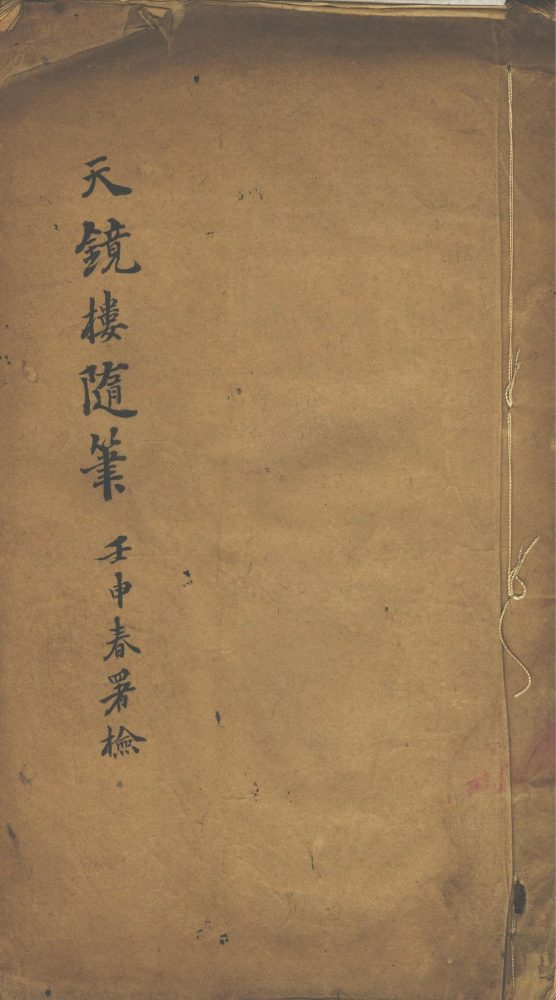 天鏡樓隨筆 壬申春署檢